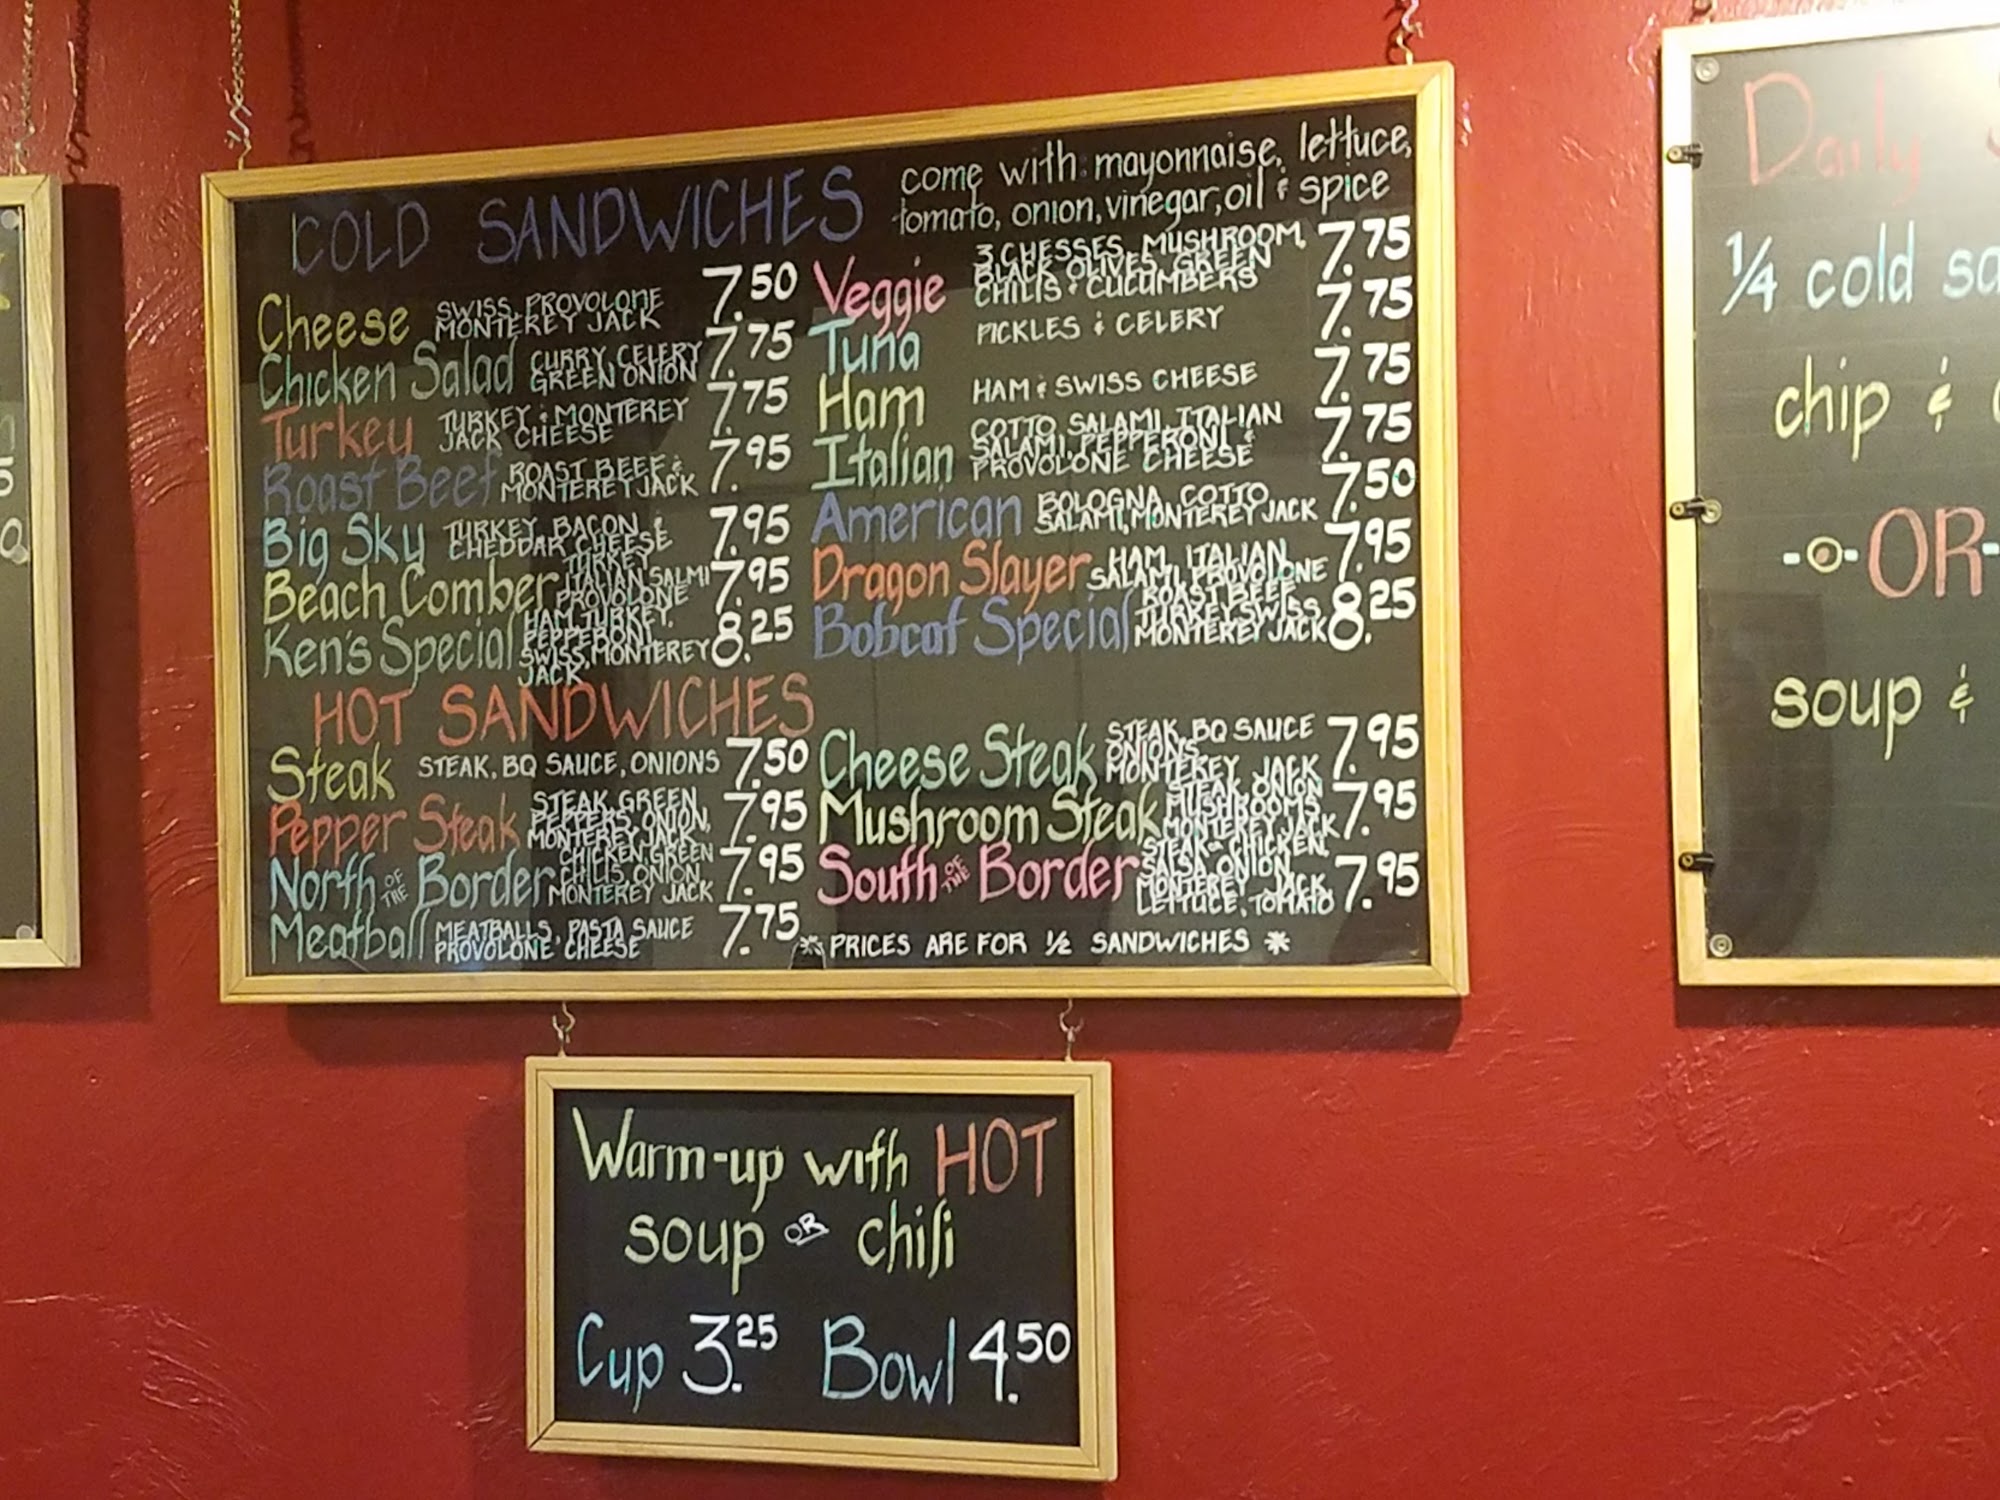 COLD SANDWICHES
come with: mayonnaise, lettuce,
tomato, onion, vinegar, oil & spice
Cheese SWISS, PROVOLONE
MONTEREY JACK 7.50
Chicken Salad CURRY, CELERY
GREEN ONION 7.75
Turkey TURKEY & MONTEREY
JACK CHEESE 7.75
Roast Beef ROAST BEEF &
MONTEREY JACK 7.95
Big Sky TURKEY, BACON &
CHEDDAR CHEESE 7.95
Beach Comber TURKEY
ITALIAN SALMI
PROVOLONE 7.95
Ken's Special HAM, TURKEY,
PEPPERONI
SWISS, MONTEREY
JACK 8.25
Veggie 3 CHESSES, MUSHROOM,
BLACK OLIVES, GREEN
CHILIS & CUCUMBERS 7.75
Tuna PICKLES & CELERY 7.75
Ham HAM & SWISS CHEESE 7.75
Italian COTTO SALAMI, ITALIAN
SALAMI, PEPPERONI &
PROVOLONE CHEESE 7.75
American BOLOGNA, COTTO
SALAMI, MONTEREY JACK 7.50
Dragon Slayer HAM, ITALIAN
SALAMI, PROVOLONE 7.95
Bobcat Special ROAST BEEF
TURKEY SWISS
MONTEREY JACK 8.25
HOT SANDWICHES
Steak STEAK, BQ SAUCE, ONIONS 7.50
Pepper Steak STEAK, GREEN
PEPPERS, ONION,
MONTEREY JACK 7.95
North OF THE Border CHICKEN, GREEN
CHILIS, ONION
MONTEREY JACK 7.95
Meatball MEATBALLS, PASTA SAUCE
PROVOLONE CHEESE 7.75
Cheese Steak STEAK, BQ SAUCE
ONIONS
MONTEREY JACK 7.95
Mushroom Steak STEAK, ONION
MUSHROOMS,
MONTEREY JACK 7.95
South OF THE Border STEAK CHICKEN,
SALSA, ONION
MONTEREY JACK,
LETTUCE, TOMATO 7.95
* PRICES ARE FOR 1/2 SANDWICHES *
Warm-up with HOT
soup OR chili
Cup 3.25 Bowl 4.50
Daily
1/4 cold sa
chip &
-o-OR-
soup &